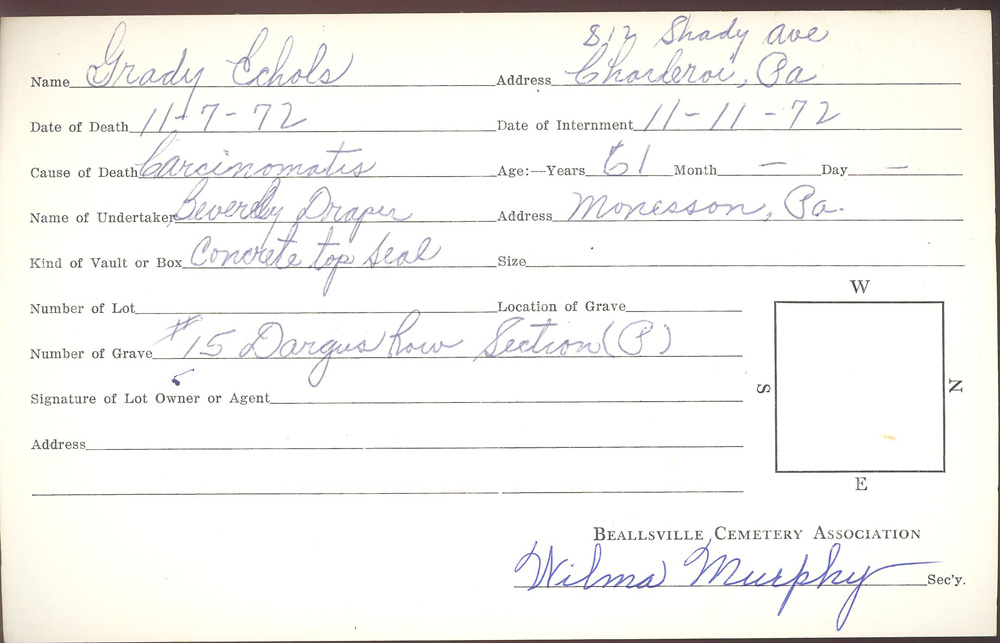 812 Shady Ave
Name Grady Echols Address Charleroi, Pa
Date of Death 11-7-72 Date of Internment 11-11-72
Cause of Death Carcinomatis Age:—Years 61 Month — Day —
Name of Undertaker Beverly Draper Address Monesson, Pa.
Kind of Vault or Box Concrete top Seal Size
W
Number of Lot Location of Grave
Number of Grave #15 Dargus Row Section (P)
S N
Signature of Lot Owner or Agent
Address
E
BEALLSVILLE CEMETERY ASSOCIATION
Wilma Murphy Sec'y.